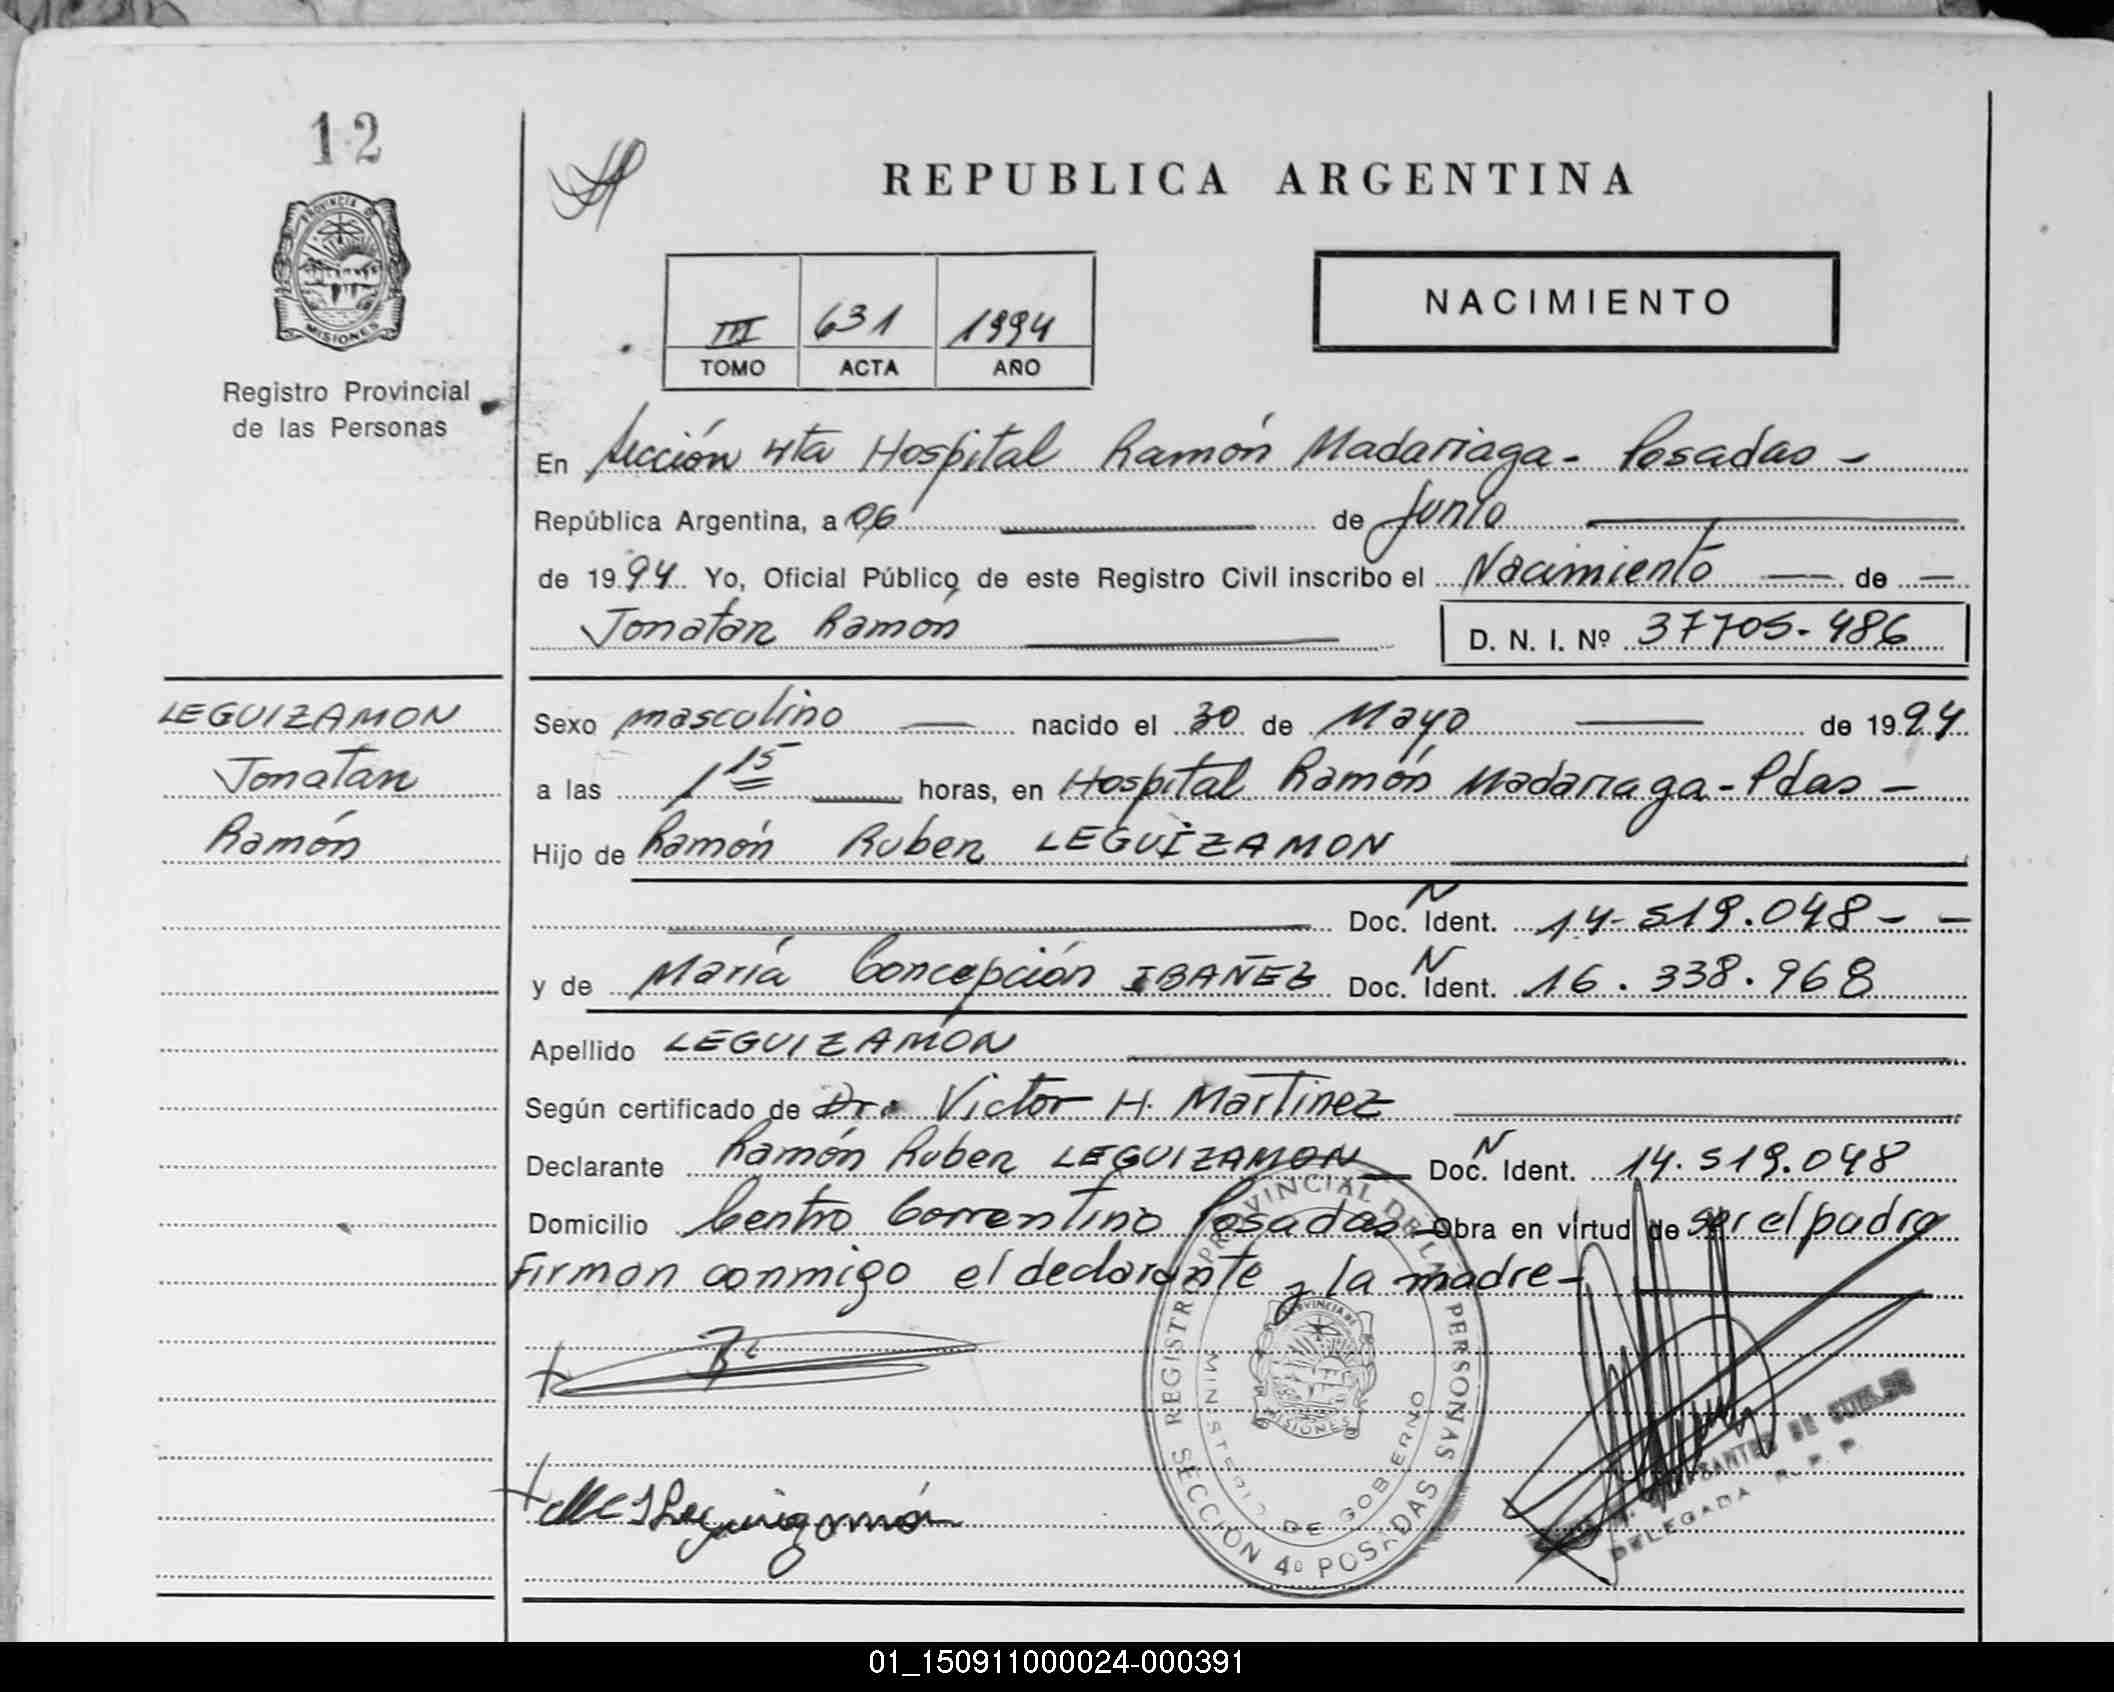 12
PROVINCIA D
MISIONES
Registro Provincial
de las Personas
REPUBLICA ARGENTINA
III 631 1994
TOMO ACTA AÑO
NACIMIENTO
En Sección 4ta Hospital Ramón Madariaga - Posadas -
República Argentina, a 06 de Junio
de 1994 Yo, Oficial Público de este Registro Civil inscribo el Nacimiento — de —
Jonatan Ramón D. N. I. Nº 37705-486
LEGUIZAMON
Jonatan
Ramón
Sexo masculino — nacido el 30 de Mayo — de 1994
a las 1 15 horas, en Hospital Ramón Madariaga - Pdas -
Hijo de Ramón Ruben LEGUIZAMON
Doc. N Ident. 14-519.048 - -
y de María Concepción IBAÑEZ Doc. N Ident. 16.338.968
Apellido LEGUIZAMON
Según certificado de Dr. Victor H. Martinez
Declarante Ramón Ruben LEGUIZAMON Doc. N Ident. 14.519.048
Domicilio Centro Correntino Posadas - Obra en virtud de ser el padre
Firman conmigo el declarante y la madre -
REGISTRO PROVINCIAL DE LAS PERSONAS
MINISTERIO DE GOBIERNO
PROVINCIA DE
MISIONES
SECCION 4º POSADAS
Leguizamón
DELEGADA R. P. P.
01_150911000024-000391